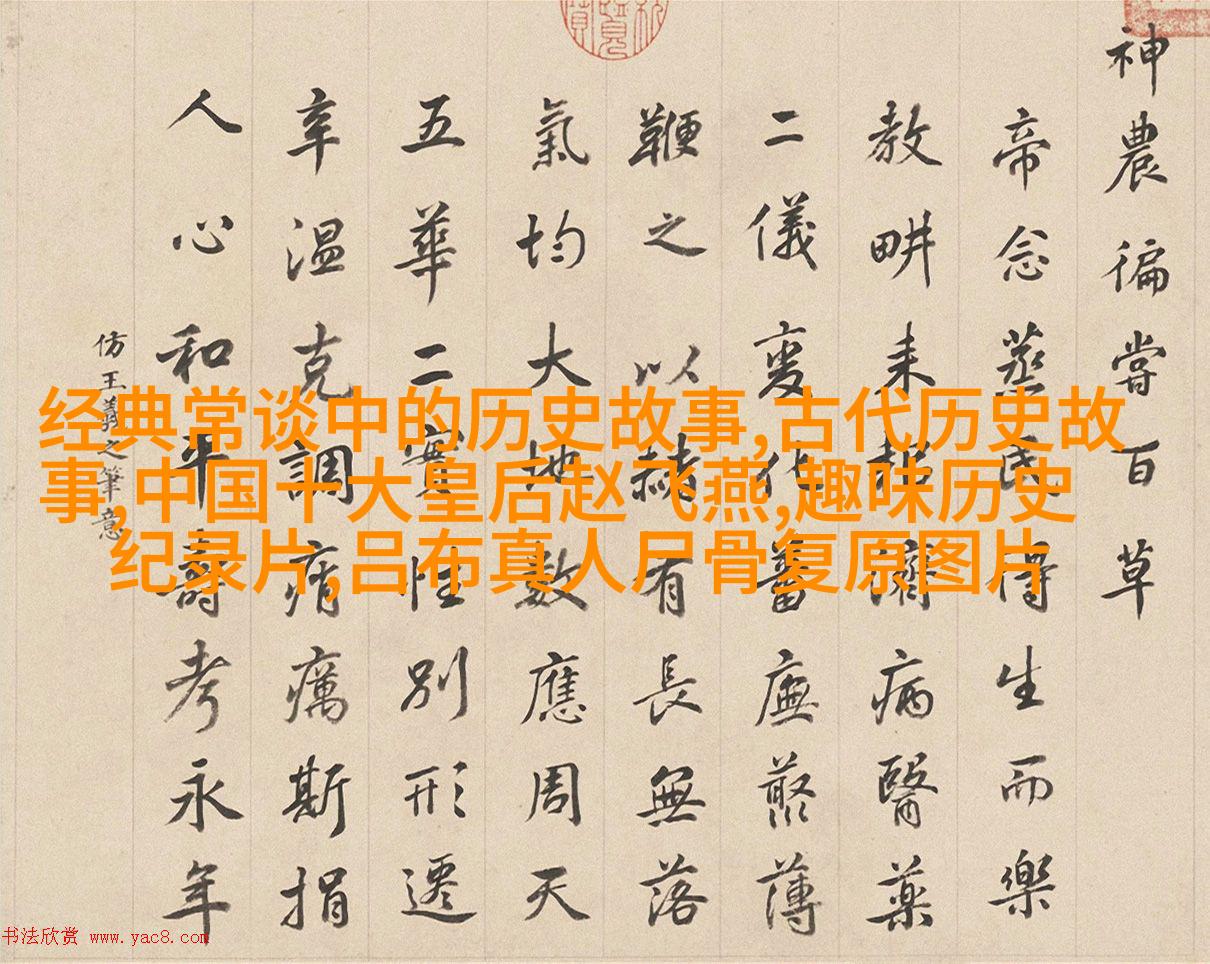 神農徧嘗百草
帝念蒸民得生而樂
教畊耒耜病醫藥
二儀变化蕃廡藂薄
鞭之以赭有長無落
氣均大地數應周天
五華二實性別形遷
辛温克調痟癘斯捐
人心和平壽考永年
仿王羲之筆意
经典常谈中的历史故事,古代历史故
事,中国十大皇后赵飞燕,趣味历史
纪录片,吕布真人尸骨复原图片
书法欣赏 www.yac8.com